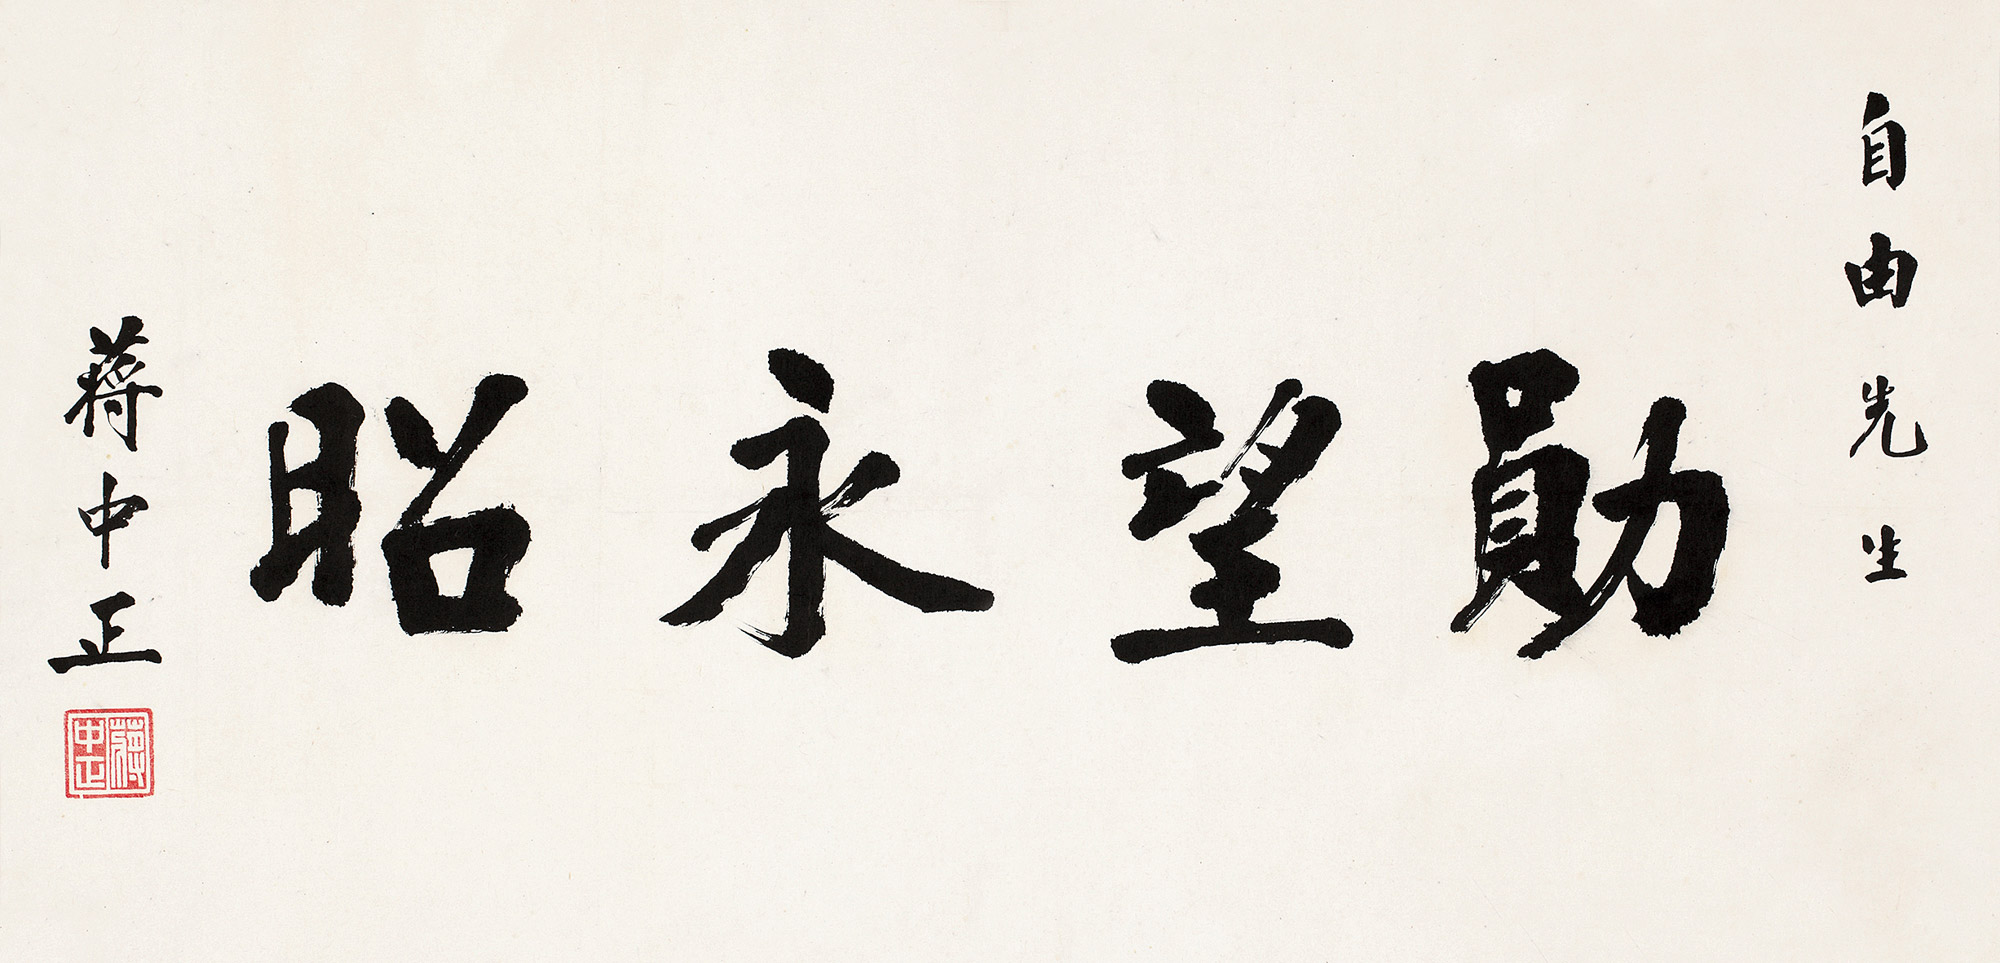 自由先生
勛望永昭
蔣中正
蔣中正